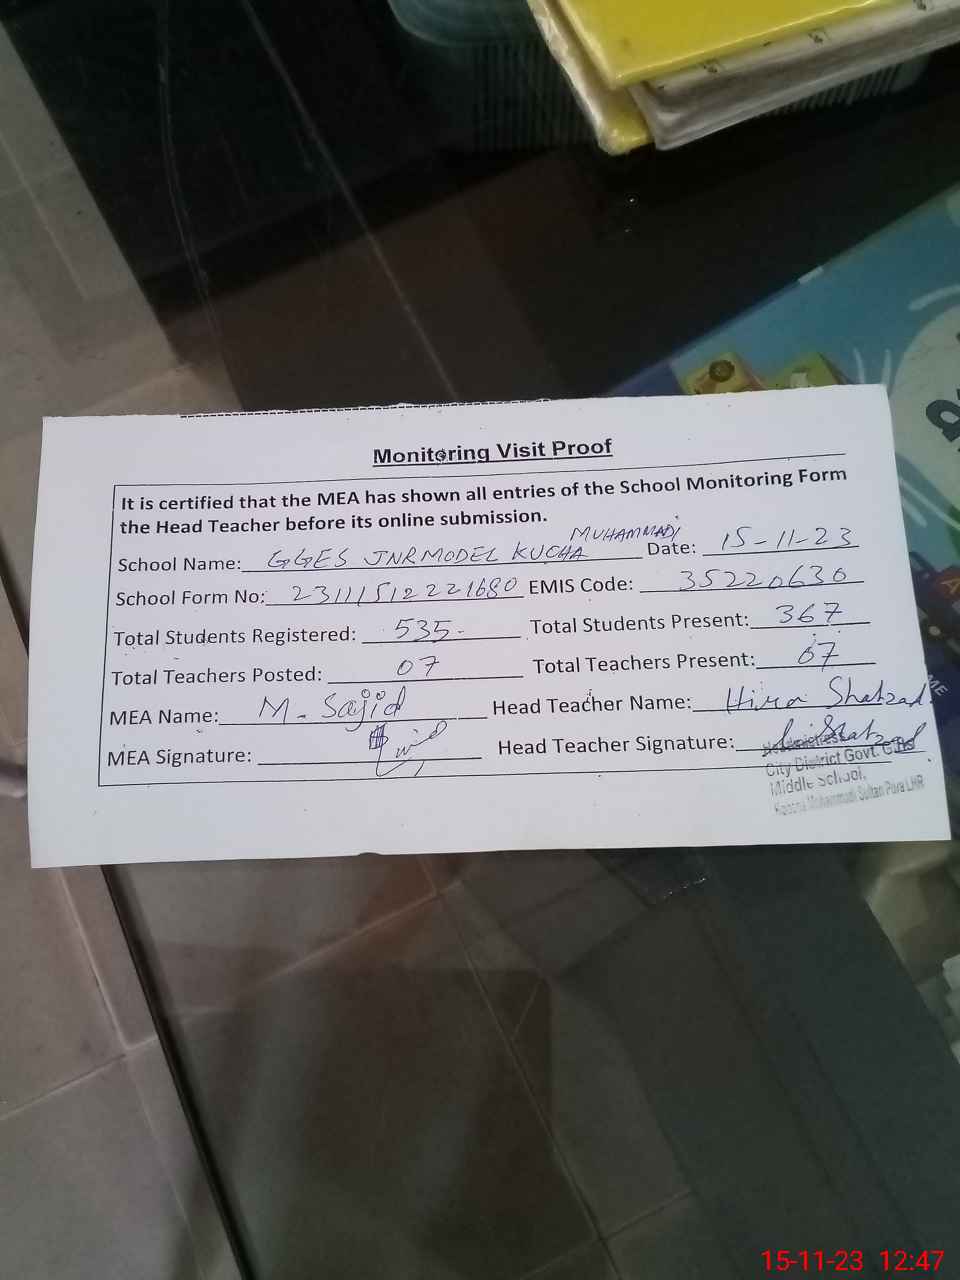 Monitoring Visit Proof
It is certified that the MEA has shown all entries of the School Monitoring Form
the Head Teacher before its online submission.
School Name: GGES JNRMODEL KUCHA MUHAMMADI Date: 15-11-23
School Form No: 231115122221680 EMIS Code: 35220630
Total Students Registered: 535- Total Students Present: 367
Total Teachers Posted: 07 Total Teachers Present: 07
MEA Name: M. Sajid Head Teacher Name: Hira Shahzad
MEA Signature: Head Teacher Signature:
City District Govt.
Middle School,
Sultan Pura LHR
ME
15-11-23 12:47